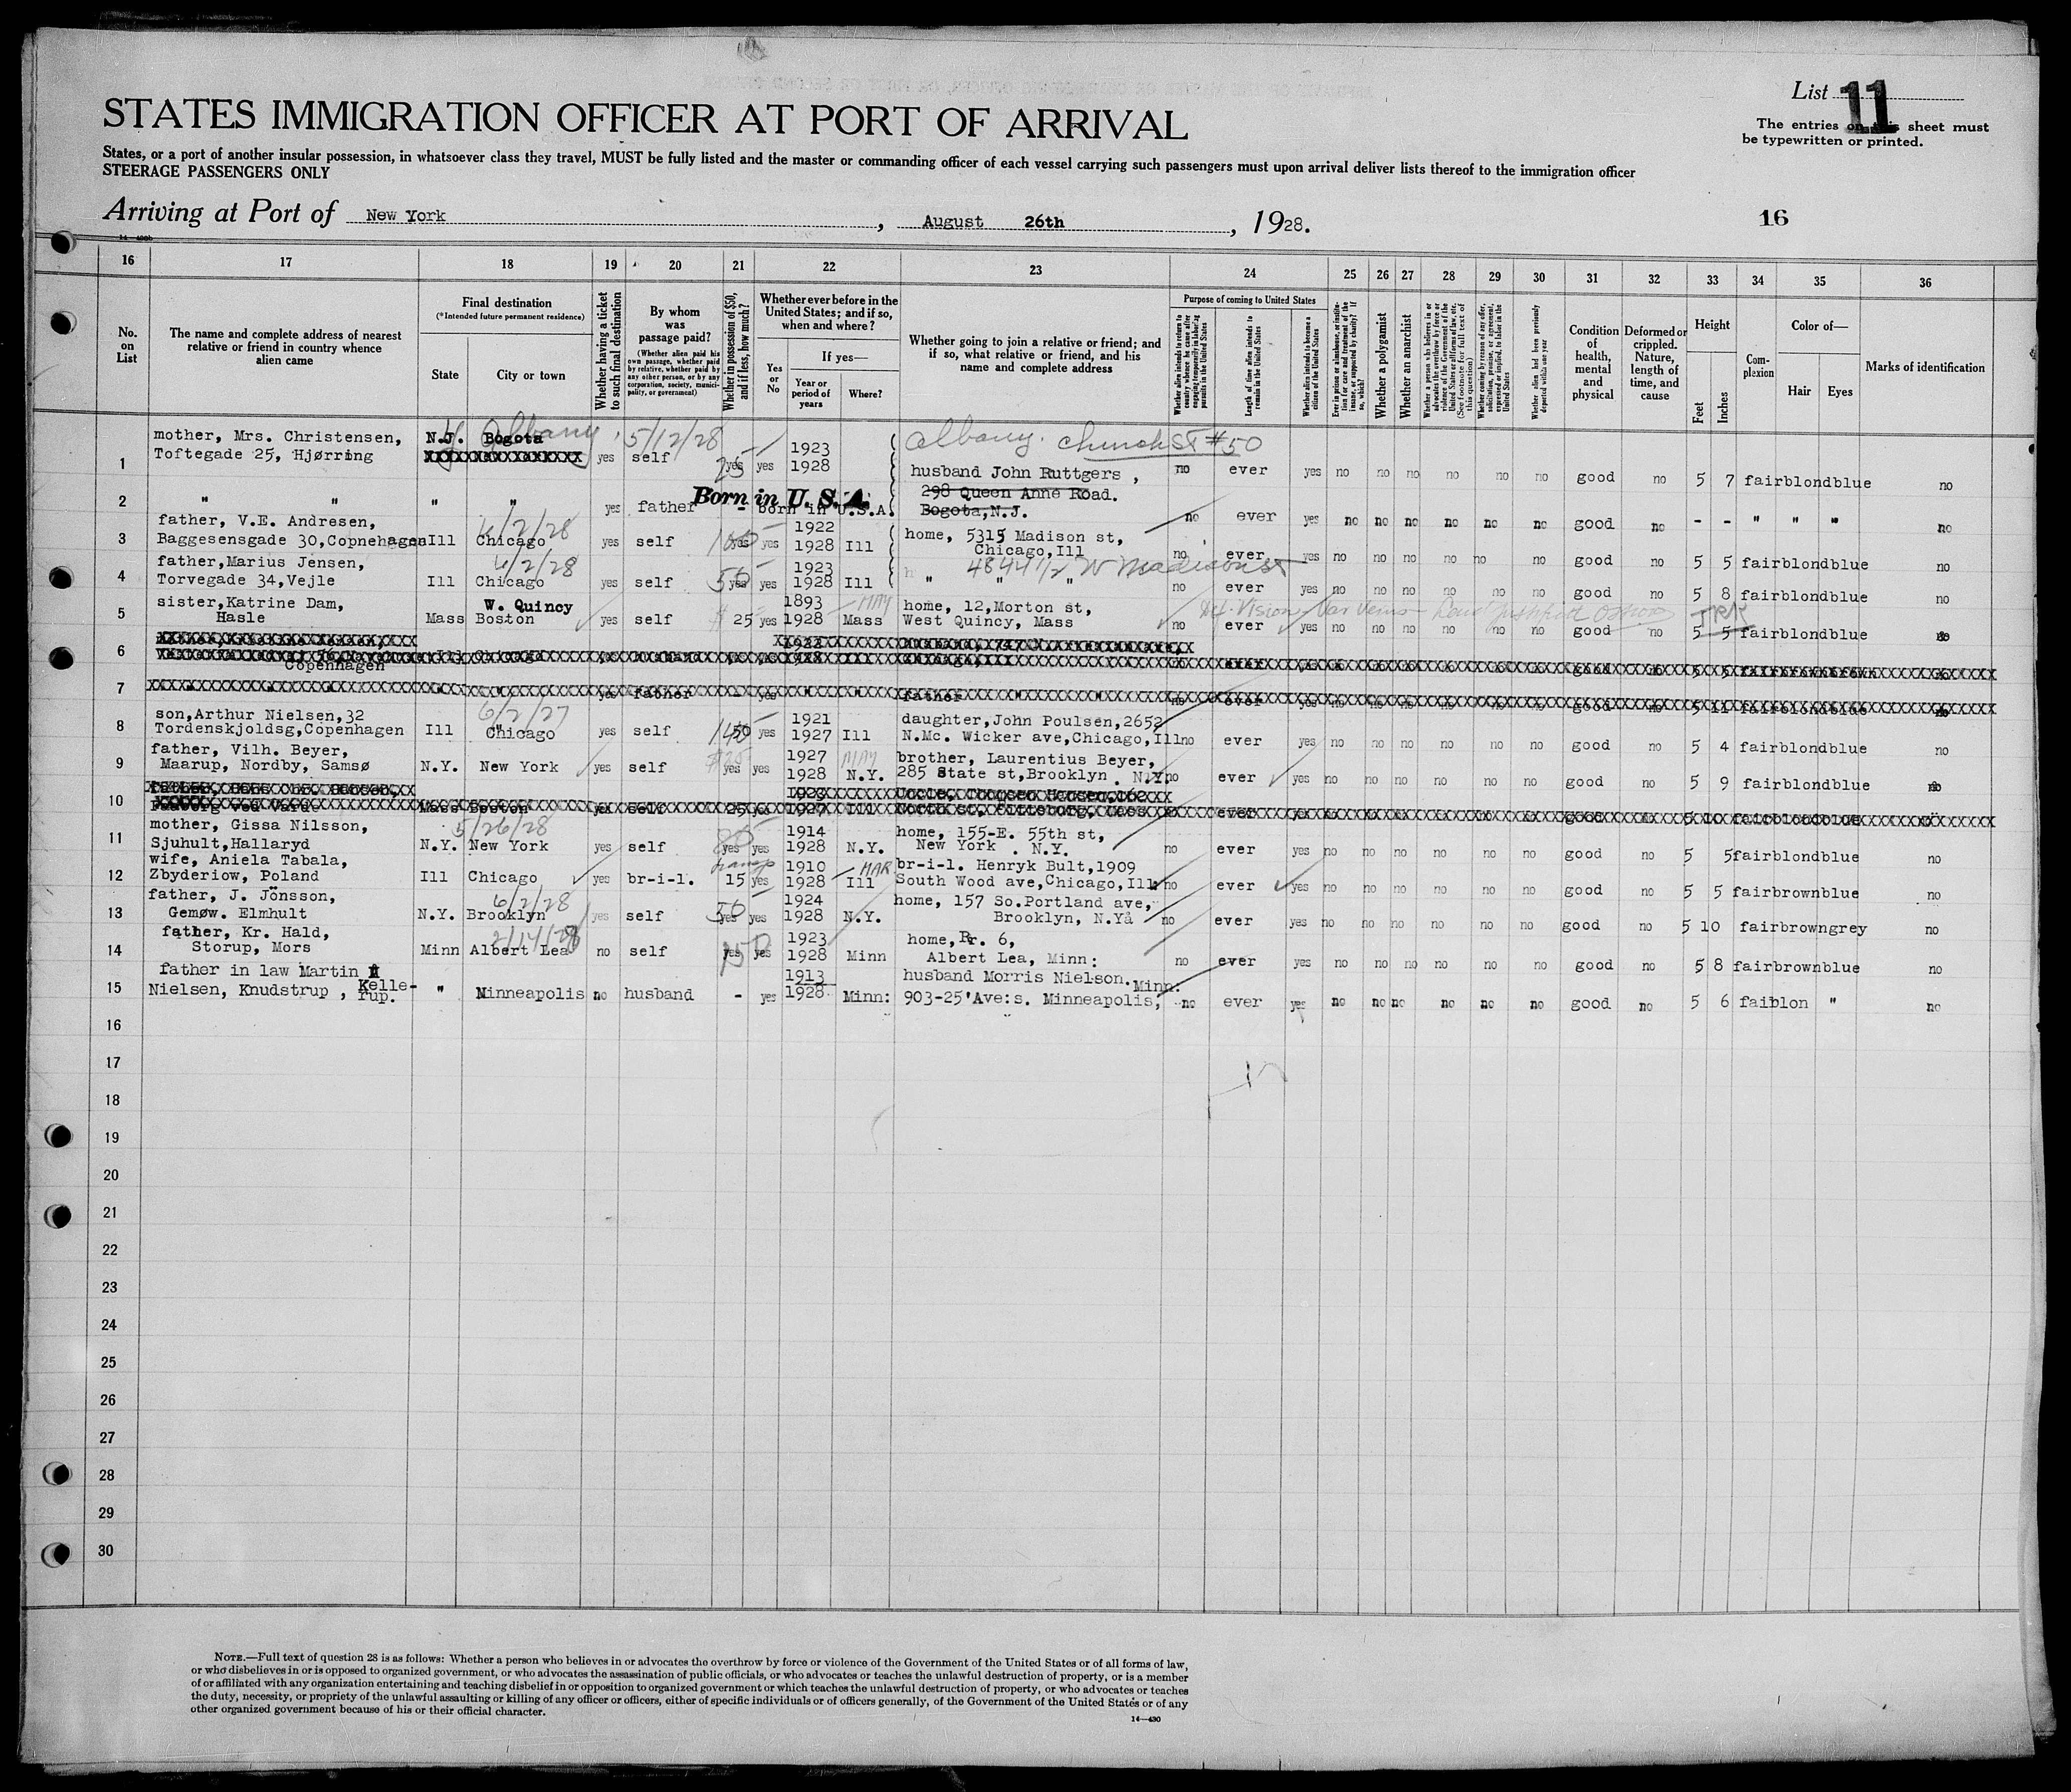 List 11
STATES IMMIGRATION OFFICER AT PORT OF ARRIVAL
The entries on this sheet must
be typewritten or printed.
States, or a port of another insular possession, in whatsoever class they travel, MUST be fully listed and the master or commanding officer of each vessel carrying such passengers must upon arrival deliver lists thereof to the immigration officer
STEERAGE PASSENGERS ONLY
Arriving at Port of New York, August 26th, 1928.
16
16 17 18 19 20 21 22 23 24 25 26 27 28 29 30 31 32 33 34 35 36
No. on List
The name and complete address of nearest relative or friend in country whence alien came
Final destination
(*Intended future permanent residence)
State
City or town
Whether having a ticket to such final destination
By whom was passage paid?
(Whether alien paid his own passage, whether paid by relative, whether paid by any other person, or by any corporation, society, municipality, or government)
Whether in possession of $50, and if less, how much?
Whether ever before in the United States; and if so, when and where?
Yes or No
If yes—
Year or period of years
Where?
Whether going to join a relative or friend; and if so, what relative or friend, and his name and complete address
Purpose of coming to United States
Whether alien intends to return to country whence he came after engaging temporarily in laboring pursuits in the United States
Length of time alien intends to remain in the United States
Whether alien intends to become a citizen of the United States
Ever in prison or almshouse, or institution for care and treatment of the insane, or supported by charity? If so, which?
Whether a polygamist
Whether an anarchist
Whether a person who believes in or advocates the overthrow by force or violence of the Government of the United States or all forms of law, etc. (See footnote for full text of this question)
Whether coming by reason of any offer, solicitation, promise, or agreement, expressed or implied, to labor in the United States
Whether alien had been previously deported within one year
Condition of health, mental and physical
Deformed or crippled. Nature, length of time, and cause
Height
Feet
Inches
Complexion
Color of—
Hair
Eyes
Marks of identification
1 mother, Mrs. Christensen, Toftegade 25, Hjørring N.J. Bogota Albany 5/12/28 yes self 25 yes yes 1923 1928 Albany. Church St #50 husband John Ruttgers, 298 Queen Anne Road. Bogota, N.J. no ever yes no no no no no no good no 5 7 fair blond blue no
2 " " " " yes father - Born in U.S.A. born in U.S.A. no ever yes no no no no no no good no - - " " " no
3 father, V.E. Andresen, Baggesensgade 30, Copnehagen Ill Chicago 6/2/28 yes self yes yes 1922 1928 Ill home, 5315 Madison st, Chicago, Ill no ever yes no no no no no no good no 5 5 fair blond blue no
4 father, Marius Jensen, Torvegade 34, Vejle Ill Chicago 6/2/28 yes self 50 yes yes 1923 1928 Ill " " " 4844 1/2 W Madison st no ever yes no no no no no no good no 5 8 fair blond blue no
5 sister, Katrine Dam, Hasle Mass W. Quincy Boston yes self $25 yes 1893 1928 MAY Mass home, 12, Morton st, West Quincy, Mass no ever yes no no no no no no good no 5 5 fair blond blue no
6 Copenhagen
7 yes father - yes father no ever yes good no 5 11 fair blond blue no
8 son, Arthur Nielsen, 32 Tordenskjoldsg, Copenhagen Ill " Chicago 6/2/27 yes self yes 1921 1927 Ill daughter, John Poulsen, 2652 N. Mc. Wicker ave, Chicago, Ill no ever yes no no no no no no good no 5 4 fair blond blue no
9 father, Vilh. Beyer, Maarup, Nordby, Samsø N.Y. New York yes self yes yes 1927 1928 MAY N.Y. brother, Laurentius Beyer, 285 State st, Brooklyn. N.Y. no ever yes no no no no no no good no 5 9 fair blond blue no
10 Mass Boston self 25 1923 1927 Ill ever good 5 10 fair blond blue
11 mother, Gissa Nilsson, Sjuhult, Hallaryd N.Y. New York 5/26/28 yes self yes yes 1914 1928 N.Y. home, 155-E. 55th st, New York. N.Y. no ever yes no no no no no no good no 5 5 fair blond blue no
12 wife, Aniela Tabala, Zbyderiow, Poland Ill Chicago yes br-i-l. 15 yes 1910 1928 MAR Ill br-i-l. Henryk Bult, 1909 South Wood ave, Chicago, Ill. no ever yes no no no no no no good no 5 5 fair brown blue no
13 father, J. Jönsson, Gemøw. Elmhult N.Y. Brooklyn 6/2/28 yes self 50 yes yes 1924 1928 N.Y. home, 157 So. Portland ave, Brooklyn, N.Yå no ever yes no no no no no no good no 5 10 fair brown grey no
14 father, Kr. Hald, Storup, Mors Minn Albert Lea 2/14/28 no self yes yes 1923 1928 Minn home, Rr. 6, Albert Lea, Minn: no ever yes no no no no no no good no 5 8 fair brown blue no
15 father in law Martin Nielsen, Knudstrup, Kelle-rup. " Minneapolis no husband - yes 1913 1928 Minn: husband Morris Nielson. 903-25'Ave:s. Minneapolis, Minn: no ever yes no no no no no no good no 5 6 fair blon " no
16
17
18
19
20
21
22
23
24
25
26
27
28
29
30
NOTE.—Full text of question 28 is as follows: Whether a person who believes in or advocates the overthrow by force or violence of the Government of the United States or of all forms of law,
or who disbelieves in or is opposed to organized government, or who advocates the assassination of public officials, or who advocates or teaches the unlawful destruction of property, or is a member
of or affiliated with any organization entertaining and teaching disbelief in or opposition to organized government or which teaches the unlawful destruction of property, or who advocates or teaches
the duty, necessity, or propriety of the unlawful assaulting or killing of any officer or officers, either of specific individuals or of officers generally, of the Government of the United States or of any
other organized government because of his or their official character.
14—430